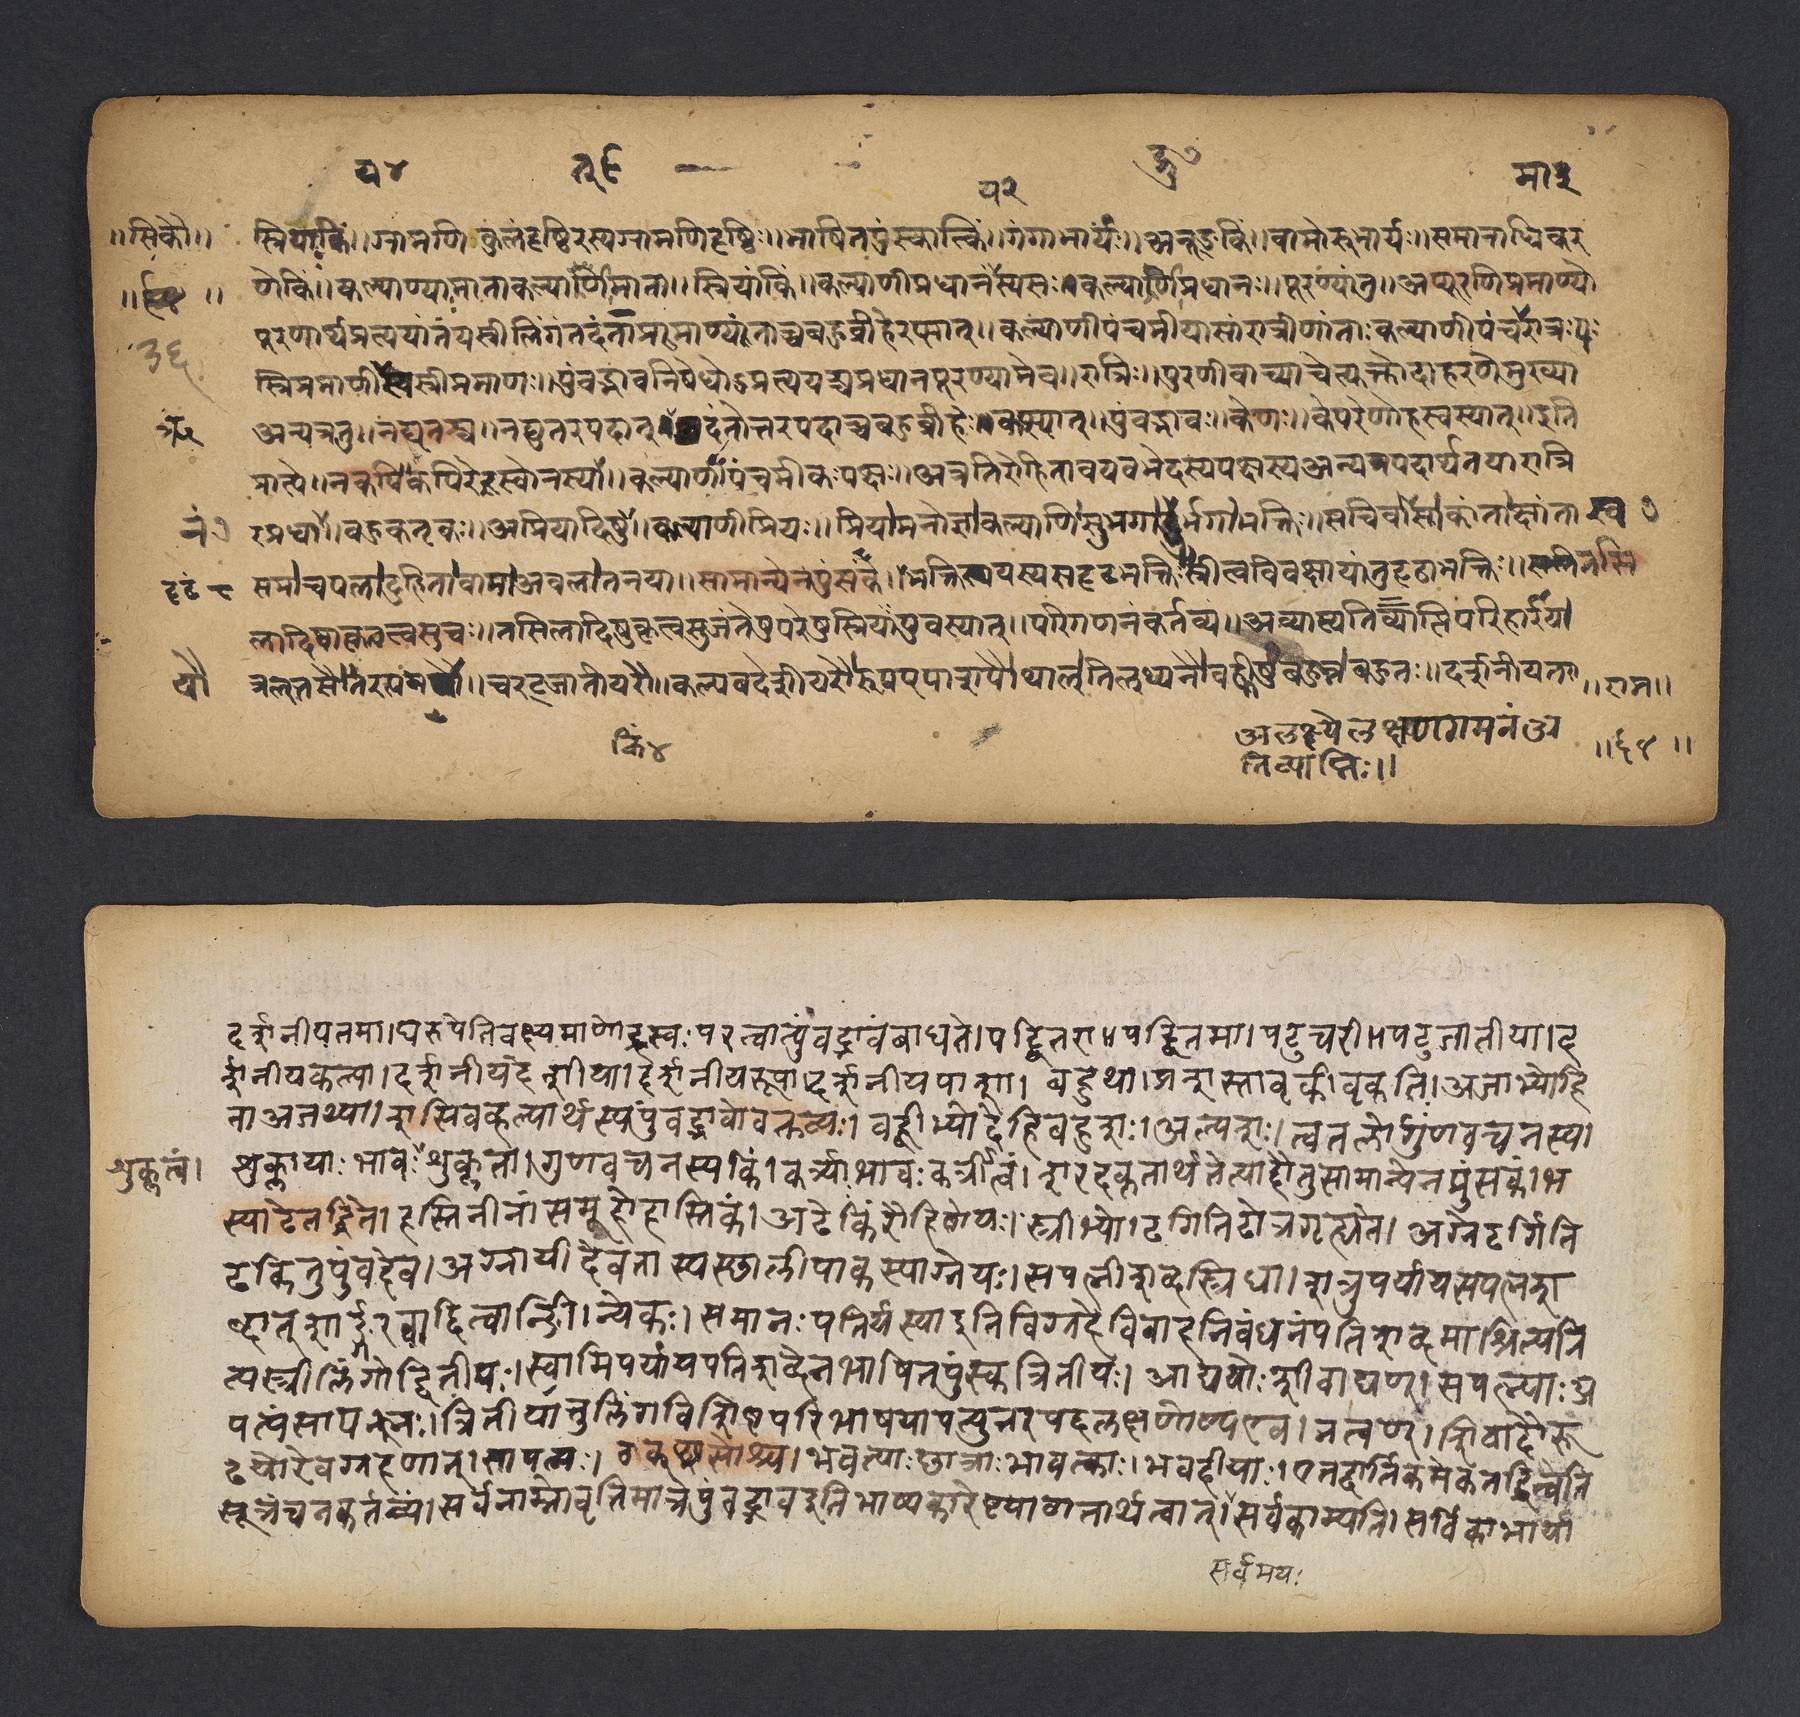 य४ तृ९ य२ ङु७ मा३
॥सिकौ॥ स्त्रियां किं॥ग्रामणि कुलं दृष्टिरस्य ग्रामणिदृष्टिः॥भाषितपुंस्कात्किं॥गंगाभार्यः॥अनूङ् किं॥वामोरुभार्यः॥समानाधिकर
णे किं॥कल्याण्या माता कल्याणीमाता॥स्त्रियां किं॥कल्याणी प्रधानं यस्य सः कल्याणीप्रधानः॥पूरण्यां तु॥अप्पूरणीप्रमाण्योः
पूरणार्थप्रत्ययांतं यस्त्रीलिंगं तदंतात्प्रमाण्यंताच्च बहुव्रीहेरप्स्यात्॥कल्याणी पंचमी यासां रात्रीणां ताः कल्याणीपंचमा रात्रयः
३६ स्त्रीप्रमाणी यस्य स्त्रीप्रमाणः॥पुंवद्भावनिषेधोऽप्प्रत्ययश्च प्रधानपूरण्यामेव॥रात्रिः॥पूरणी वाच्या चेत्युक्तोदाहरणे मुख्या
अन्यत्र तु॥नद्यृतश्च॥नद्युत्तरपदात् दंतोत्तरपदाच्च बहुव्रीहेः कप्स्यात्॥पुंवद्भावः॥केणः॥के परेणो ह्रस्वस्स्यात्॥इति
प्राप्ते॥न कपि॥कपि परे ह्रस्वो न स्यात्॥कल्याणीपंचमीकः पक्षः॥अत्र तिरोहितावयवभेदस्य पक्षस्य अन्यपदार्थतया रात्रि
नं७ रप्रधा॥बहुकर्तृकः॥अप्रियादिषु॥कल्याणीप्रियः॥प्रिया।मनोज्ञा।कल्याणी।सुभगा।दुर्भगा।भक्तिः॥सचिवा।स्वा।कांता।क्षांता
दृढं८ समा।चपला।दुहिता।वामा।अबला।तनया॥सामान्ये नपुंसकं॥दृढं भक्तिर्यस्य स दृढभक्तिः स्त्रीत्वविवक्षायां तु दृढाभक्तिः॥तसि
लादिष्वाकृत्वसुचः॥तसिलादिषु कृत्वसुजंतेषु परेषु स्त्रियां पुंवत्स्यात्॥परिगणनं कर्तव्यं॥अव्याप्त्यतिव्याप्तिपरिहाराय।
त्रतसौ॥तरप्तमपौ॥चरट्जातीयरौ॥कल्पब्देशीयरौ॥रूपप्पाशपौ॥थाल्॥तिल्थ्यनौ॥बह्वीषु बहुत्र।बहुतः॥दर्शनीयतरा ॥राम॥
किं४
अलक्ष्ये लक्षणगमनं अ ॥६४॥
तिव्याप्तिः॥
दर्शनीयतमा।घरूपेति वक्ष्यमाणो ह्रस्वः परत्वात्पुंवद्भावं बाधते।पट्वितरा॥पट्वितमा।पटुचरी॥पटुजातीया।द
र्शनीयकल्पा।दर्शनीयदेशीया।दर्शनीयरूपा।दर्शनीयपाशा।बहुथा।प्रशस्ता वृकी।वृकतिः।अजाभ्यो हि
ता अजथ्या।शसि बह्वल्पार्थस्य पुंवद्भावो वक्तव्यः।बह्वीभ्यो देहि बहुशः।अल्पशः।त्वतलोर्गुणवचनस्य।
शुक्लत्वं। शुक्लायाः भावः शुक्लता।गुणवचनस्य किं।कर्त्र्या भावः कर्त्रीत्वं।शरदः कृतार्थतेत्यादौ तु सामान्ये नपुंसकं।भ
स्याढे तद्धिते।हस्तिनीनां समूहो हास्तिकं।अढे किं रौहिणेयः।स्त्रीभ्यो ढगिति ढोत्र गृह्यते।अग्नेर्ढगिति
ढकि तु पुंवदेव।अग्नायी देवतास्य स्थालीपाकस्याग्नेयः।सपत्नीशब्दस्त्रिधा।शत्रुपर्यायसपत्नश
ब्दात् शार्ङ्गरवादित्वान्ङी।न्येकः।समानः पतिर्यस्या इति विग्रहे विवाहनिबंधनं पतिशब्दमाश्रित्य नि
त्यस्त्रीलिंगो द्वितीयः।स्वामिपर्यायपतिशब्देन भाषितपुंस्कस्त्रितीयः।आद्ययोः शिवाद्यण्।सपत्न्याः अ
पत्यं सापत्नः।त्रितीयात्तु लिंगविशिष्टपरिभाषया पत्युत्तरपदलक्षणो ण्य एव।न त्वण्।शिवादौ रू
ढयोरेव ग्रहणात्।सापत्यः।ठक्छसोश्च।भवत्याः छात्राः भावत्काः।भवदीयाः।एतद्वार्तिकमेकतद्धितेति
सूत्रं च न कर्तव्यं।सर्वनाम्नो वृत्तिमात्रे पुंवद्भाव इति भाष्यकारेष्ट्या गतार्थत्वात्।सर्वकाम्यति।सर्विका भार्या
सर्वमयः